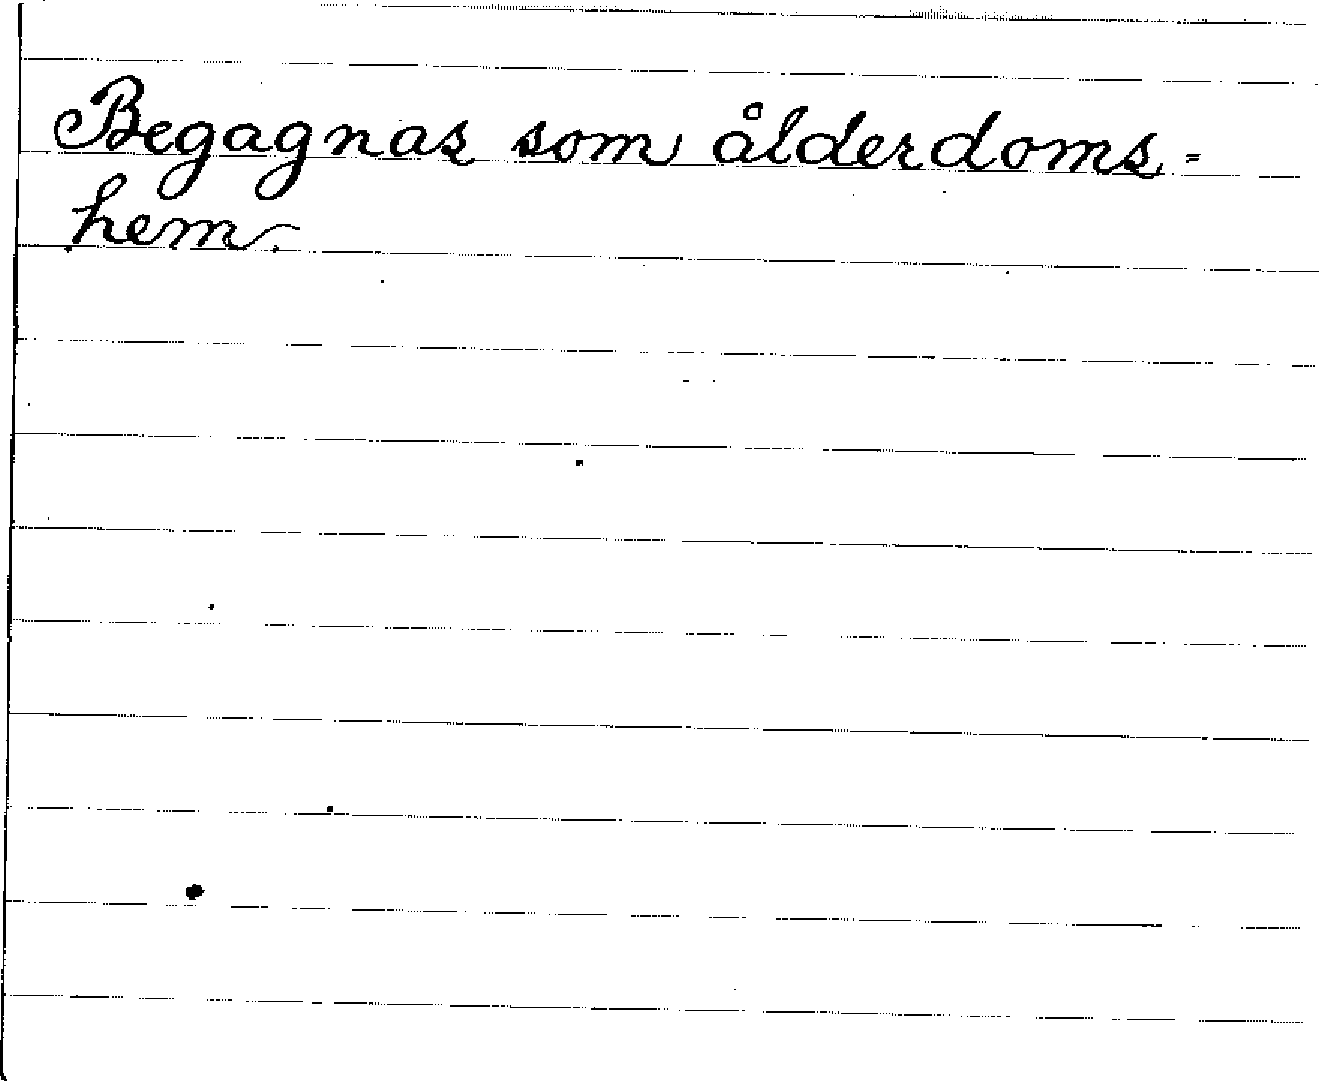 Begagnas som ålderdoms-
hem.